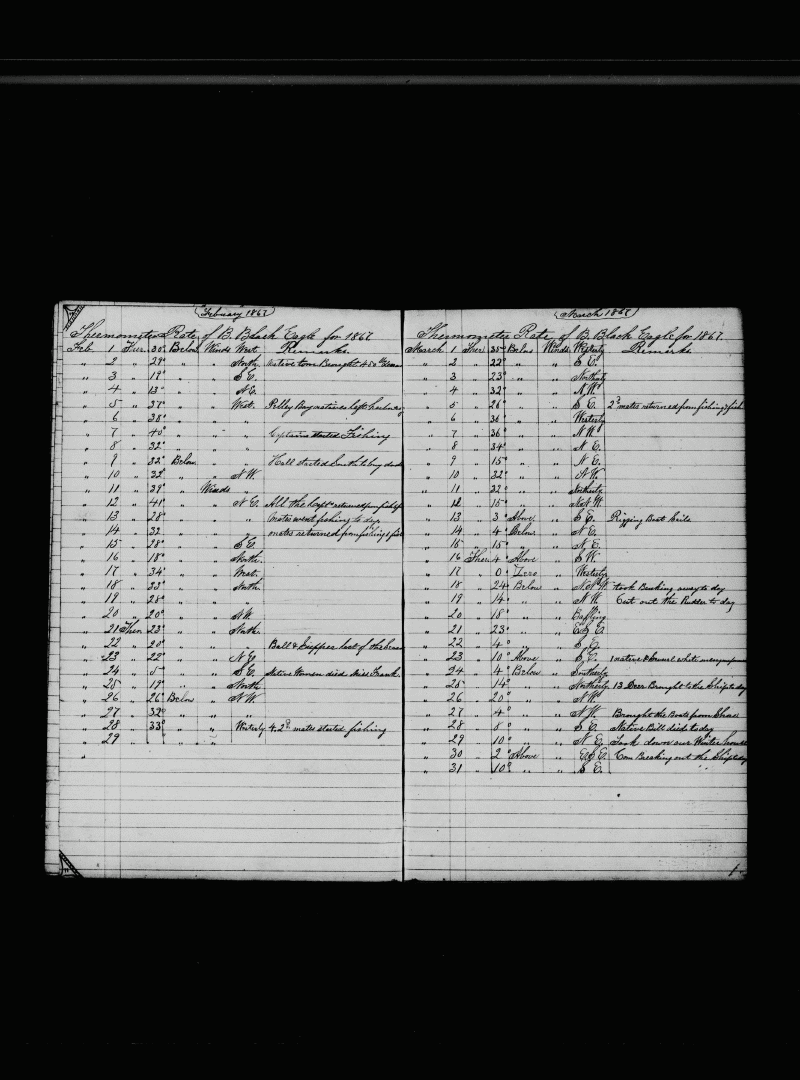 "February" 1867
Thermometer Rate of B. Black Eagle for 1867
Feb 1 Ther 30° Below Winds West Remarks
" 2 " 29° " " North Native town Brought 450
" 3 " 19° " " S.E.
" 4 " 13° " " N.E.
" 5 " 37° " " West. Pelley Bay natives left
" 6 " 38° " " "
" 7 " 40° " " " Captain started Fishing
" 8 " 32° " " "
" 9 " 32° Below " " Hall started
" 10 " 32° " " N.W.
" 11 " 39° " Winds
" 12 " 41° " " N.E. All the returned from
" 13 " 28° " " " Mates went fishing to day
" 14 " 32 " " mates returned from fishing
" 15 " 28° " " S.E.
" 16 " 18° " " North.
" 17 " 34° " " West.
" 18 " 33° " " North
" 19 " 28° " "
" 20 " 20° " " N.W.
" 21 Ther 23° " " North.
" 22 " 20° " " Ball &
" 23 " 22° " " N.E.
" 24 " 5° " " S.E. Native Women died
" 25 " 19° " " North
" 26 " 26° Below " N.W.
" 27 " 32° " " "
" 28 " 33° " " Westerly 4. 2d mates started fishing
" 29 " " "
"
March 1867
Thermometer Rate of B. Black Eagle for 1867.
March 1 Ther 35° Below Winds Westerly Remarks
" 2 " 22° " " S.E.
" 3 " 23° " " Northerly
" 4 " 32° " " N.W.
" 5 " 26° " " S.E. 2d mates returned from fishing
" 6 " 36° " " Westerly
" 7 " 36° " " N.W.
" 8 " 34° " " N.E.
" 9 " 15° " " N.E.
" 10 " 32° " " N.W.
" 11 " 32° " " Northerly
" 12 " 15° " " N.W.
" 13 " 3° Above " S.E. Rigging Boat Sails
" 14 " 4° Below " N.E.
" 15 " 15° " " N.E.
" 16 Ther 4° Above " S.W.
" 17 " 0° Zero " Westerly
" 18 " 24° Below " took Banking away to day
" 19 " 14° " " N.W. Cut out the Rudder to day
" 20 " 18° " " Baffling
" 21 " 23° " " E
" 22 " 4° " " S.E.
" 23 " 10° Above " S.E. 1 native &
" 24 " 4° Below " Southerly
" 25 " 14° " " Northerly 13 Deer Brought to the Ship to day
" 26 " 20° " " N.W.
" 27 " 4° " " N.W. Brought the Boats from Shore
" 28 " 8° " " S.E. Native Bill died to day
" 29 " 10° " " N.E. Took down our Winter house
" 30 " 2° Above " E Com Breaking out the Ship to day
" 31 " 10° " " S.E. " "